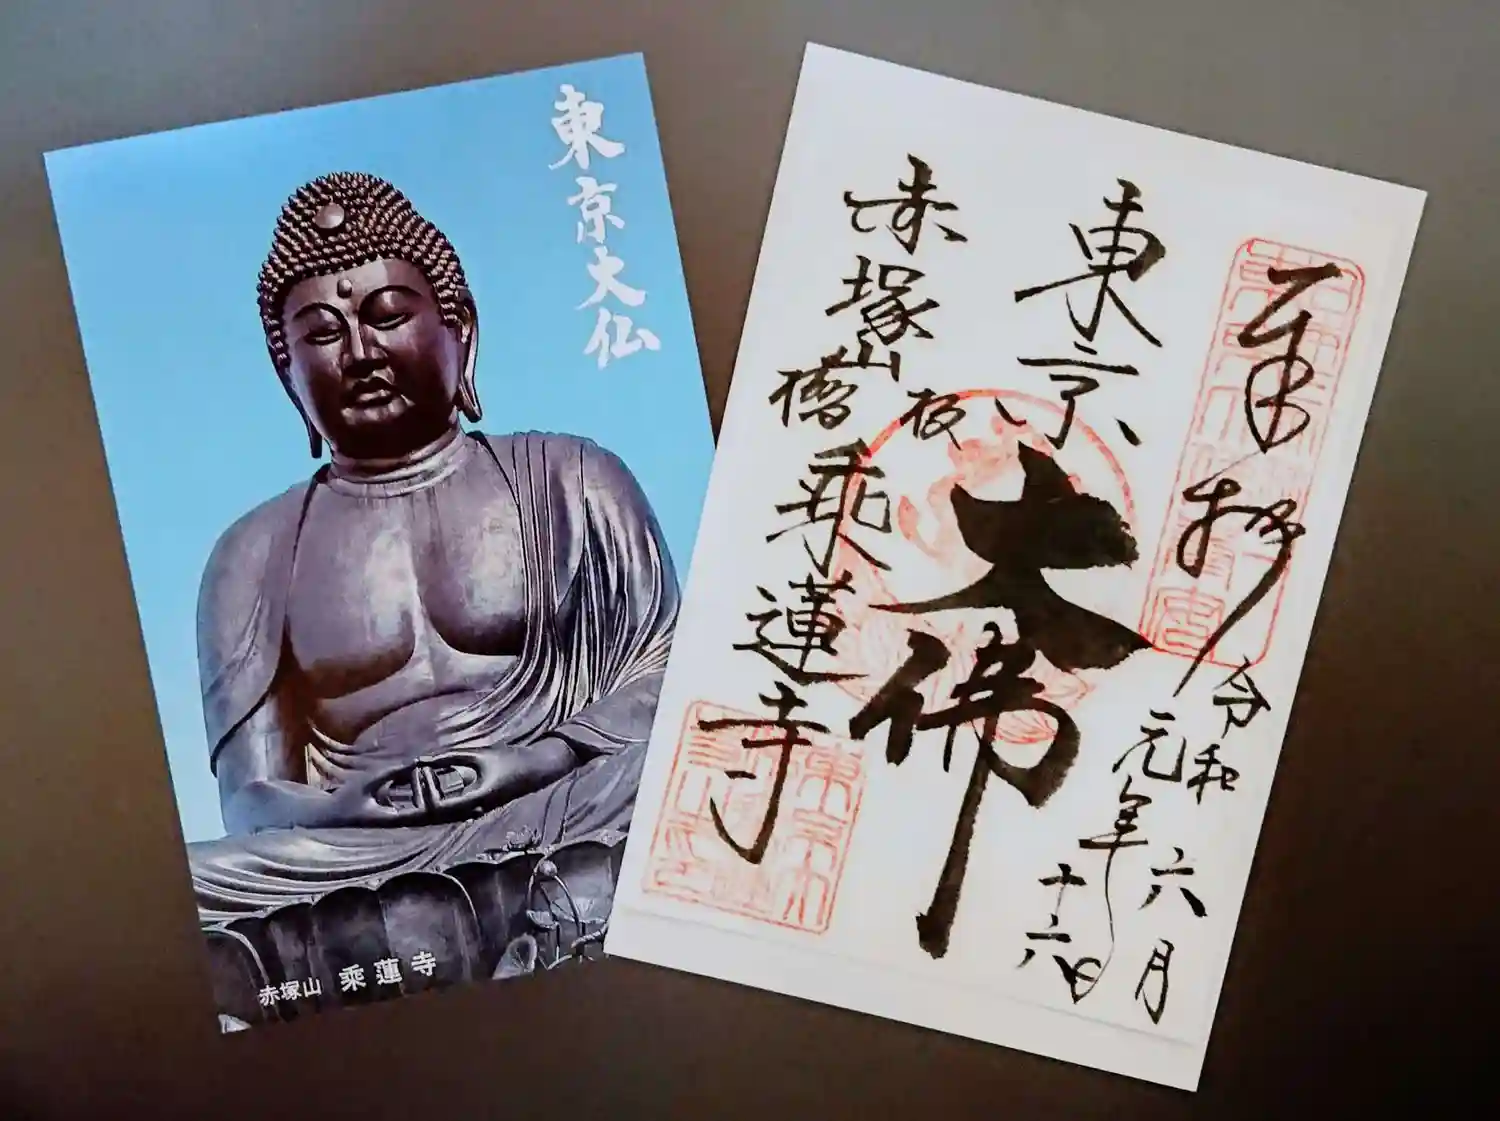 東京大仏
赤塚山 乗蓮寺
奉拝
令和
元年
六月
十六日
東京
大佛
赤塚山
板橋
乗蓮寺